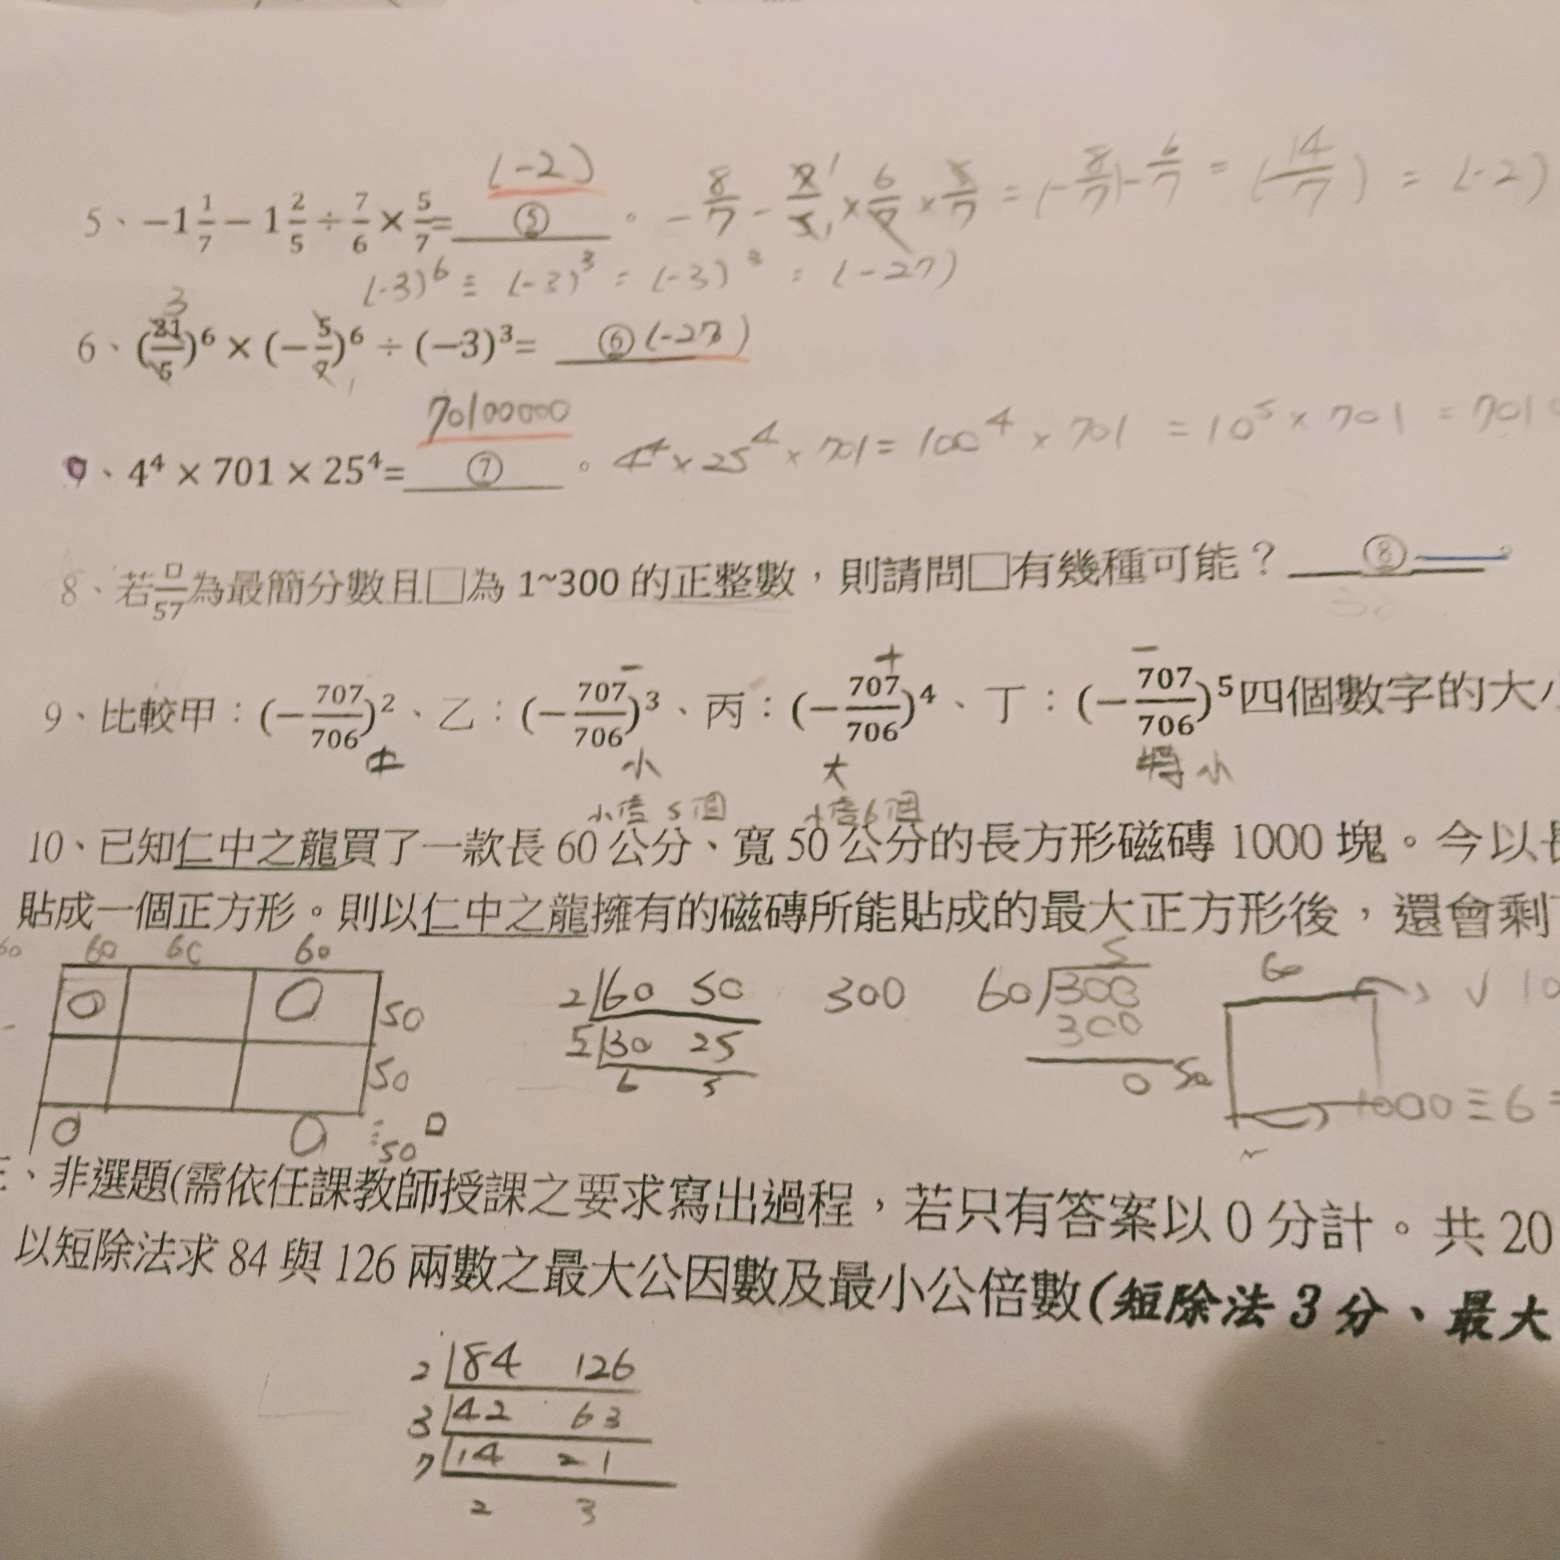 (-2)
5、−1 1/7 − 1 2/5 ÷ 7/6 × 5/7 = ⑤ 。 −8/7 − 7/5 × 6/7 × 5/7 = (−8/7) − 6/7 = (−14/7) = (-2)
(-3)⁶ ÷ (-3)³ = (-3)³ = (-27)
3
6、(21/5)⁶ × (−5/7)⁶ ÷ (−3)³= ⑥ (-27)
1
70100000
、4⁴ × 701 × 25⁴= ⑦ 。 4⁴ × 25⁴ × 701 = 100⁴ × 701 = 10⁵ × 701 = 701
8、若□/57為最簡分數且□為 1~300 的正整數，則請問□有幾種可能？ ⑧ 。
30
− + −
9、比較甲：(−707/706)²、乙：(−707/706)³、丙：(−707/706)⁴、丁：(−707/706)⁵四個數字的大
中 小 大 特小
小信 5個 個
10、已知仁中之龍買了一款長 60 公分、寬 50 公分的長方形磁磚 1000 塊。今以
貼成一個正方形。則以仁中之龍擁有的磁磚所能貼成的最大正方形後，還會剩
60 60 60 60
50 2 60 50 300 60 300 5 60 √ 10
50 5 30 25 300
6 5 0 50 1000 ÷ 6 =
50
、非選題(需依任課教師授課之要求寫出過程，若只有答案以 0 分計。共 20
以短除法求 84 與 126 兩數之最大公因數及最小公倍數(短除法 3 分、最大
2 84 126
3 42 63
7 14 21
2 3